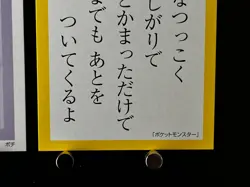 なつっこく
しがりで
とかまっただけで
までも あとを
ついてくるよ
『ポケットモンスター』
ポチ